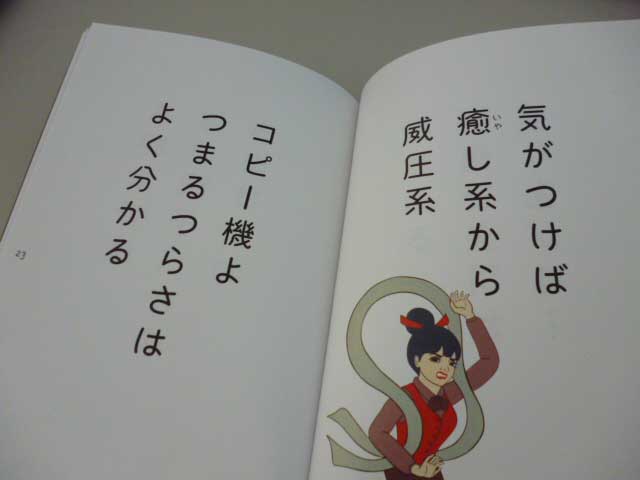 気がつけば
癒し系から
いや
威圧系
コピー機よ
つまるつらさは
よく分かる
23